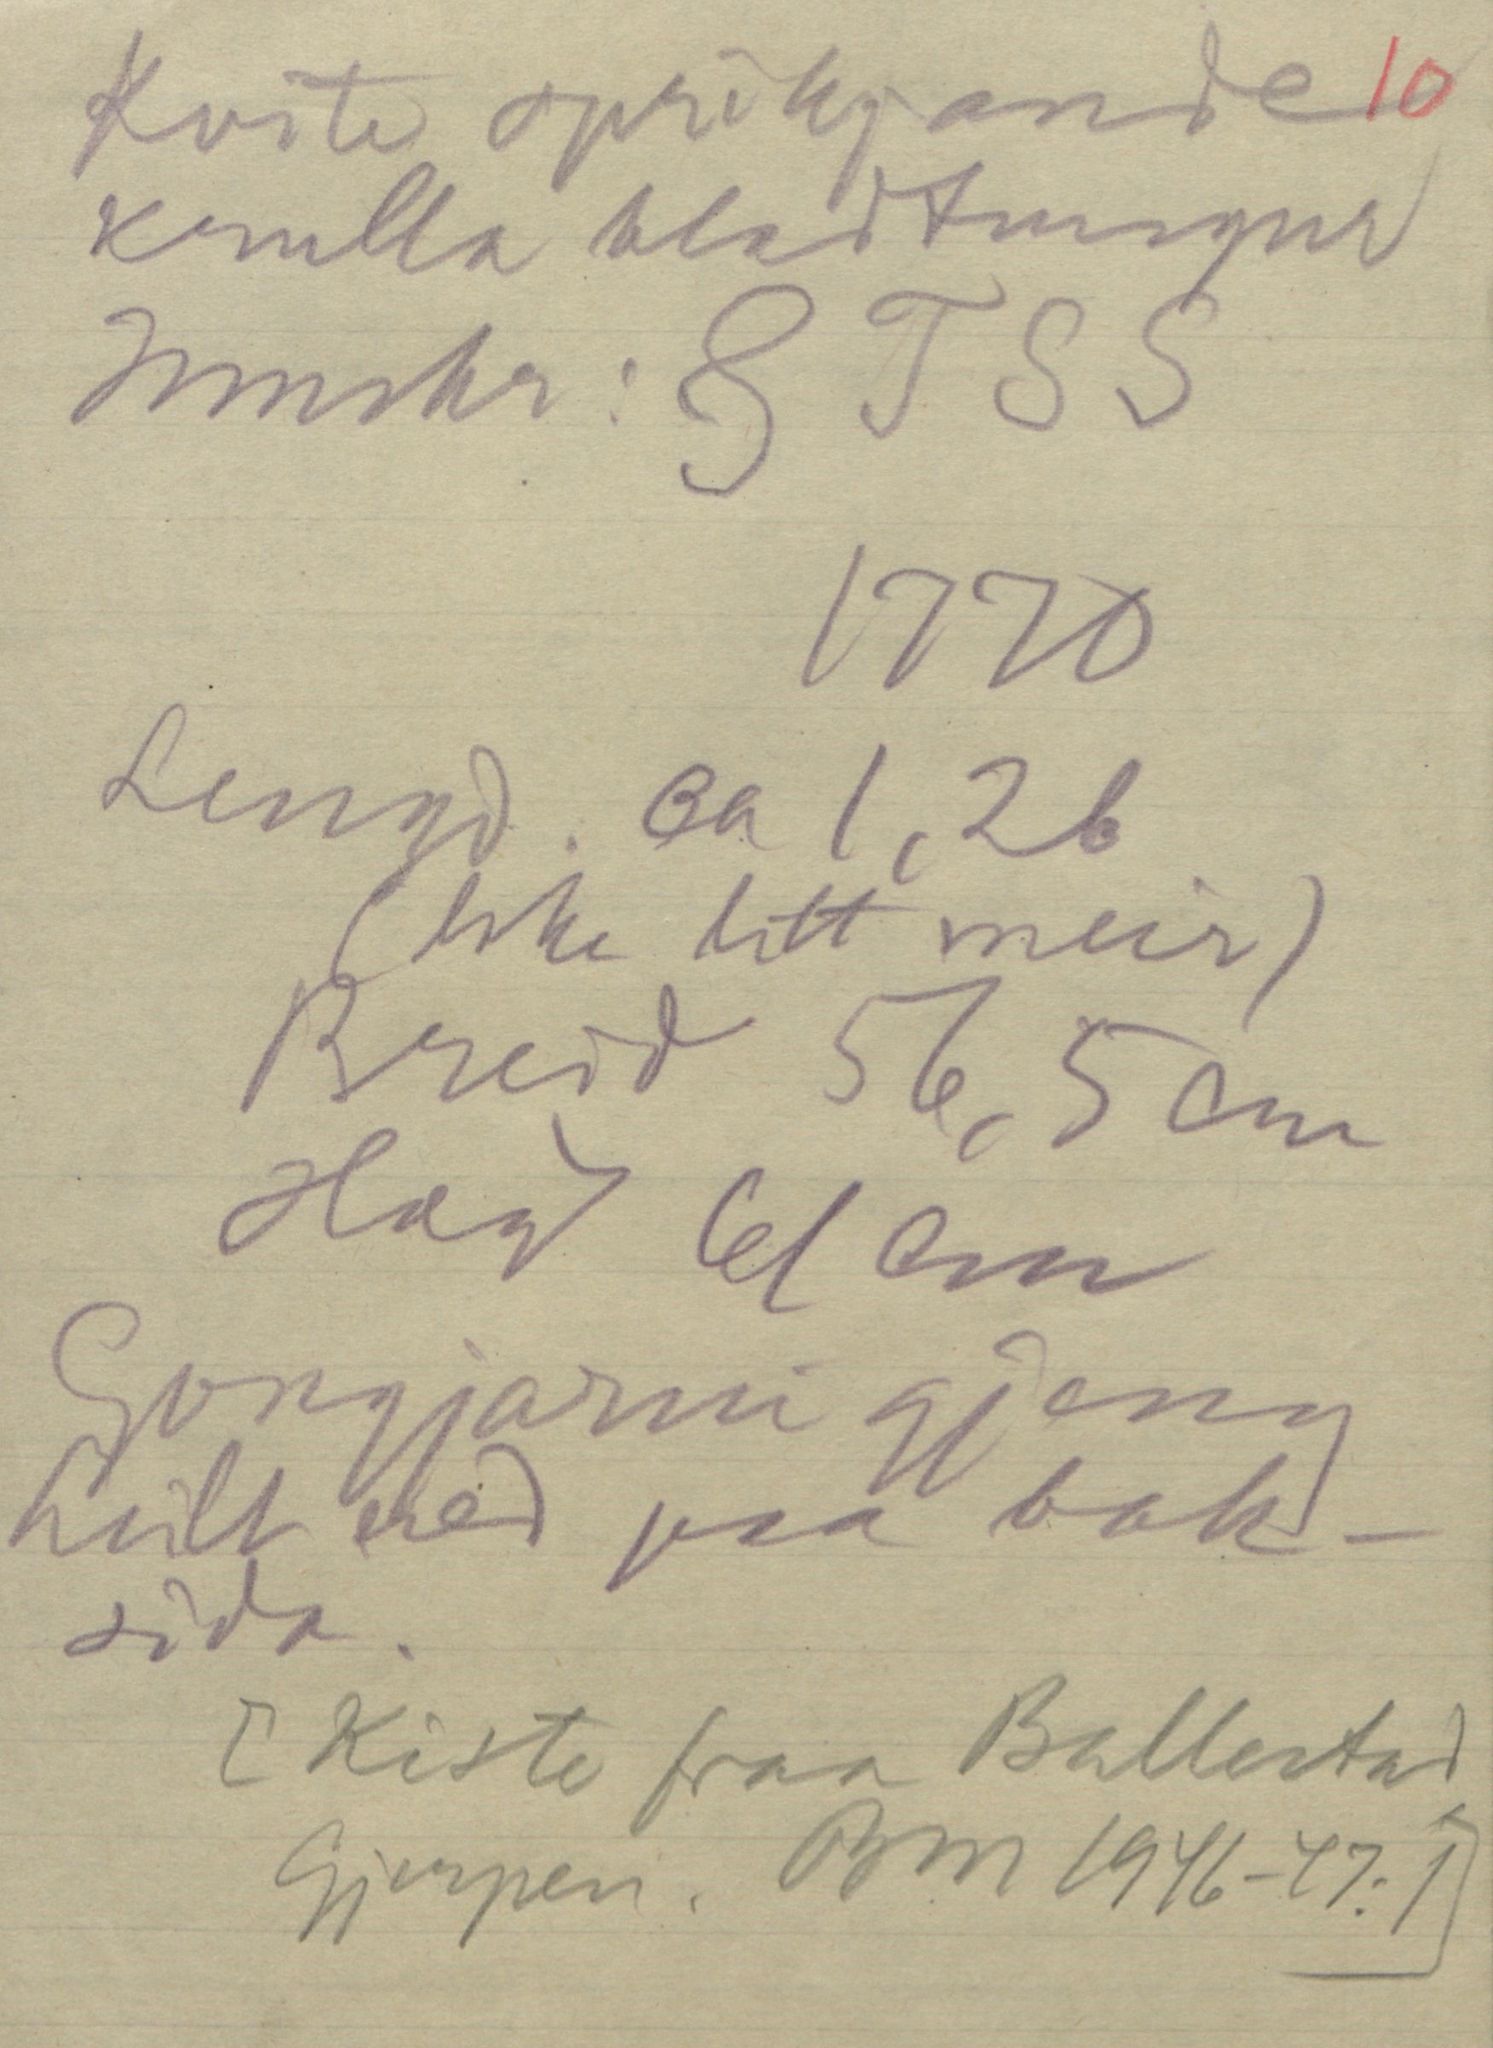 Kvite sprikjande 10
krulla bladtungur
Innskr: S T S S
1770
Lengd. ca 1,26
(ikke litt meir)
Breid 56,5 cm
Høgd 61 cm
Gongjarni gjeng
heilt ned paa bak-
sida.
[Kiste fraa Ballestad
Gjerpen. BM 1946-47:1]